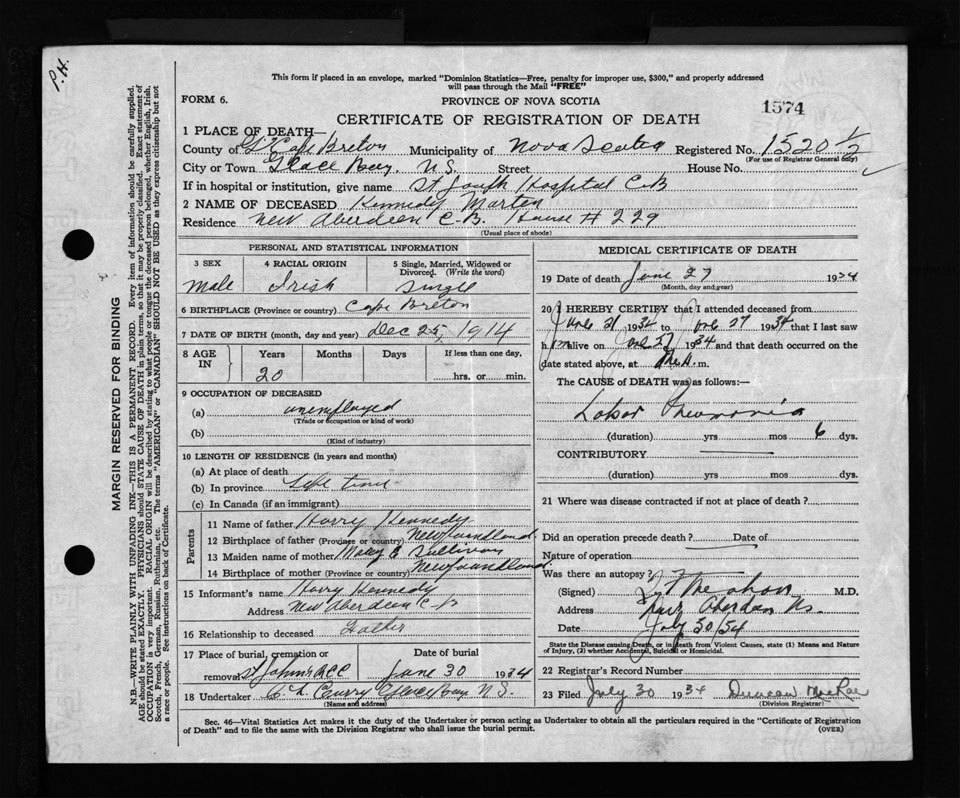 P.H.
This form if placed in an envelope, marked "Dominion Statistics—Free, penalty for improper use, $300," and properly addressed
will pass through the Mail "FREE"
FORM 6.
PROVINCE OF NOVA SCOTIA
1574
CERTIFICATE OF REGISTRATION OF DEATH
1 PLACE OF DEATH—
County of Cape Breton Municipality of Nova Scotia Registered No. 1520 1/2
(For use of Registrar General only)
City or Town Glace Bay. N.S. Street House No.
If in hospital or institution, give name St Joseph Hospital C.B
2 NAME OF DECEASED Kennedy Marten
Residence New Aberdeen C-B. House # 229
(Usual place of abode)
PERSONAL AND STATISTICAL INFORMATION
3 SEX 4 RACIAL ORIGIN 5 Single, Married, Widowed or Divorced. (Write the word)
Male Irish Single
6 BIRTHPLACE (Province or country) Cape Breton
7 DATE OF BIRTH (month, day and year) Dec 25, 1914
8 AGE IN Years Months Days If less than one day,
20 hrs. or min.
9 OCCUPATION OF DECEASED
(a) unemployed
(Trade or occupation or kind of work)
(b)
(Kind of industry)
10 LENGTH OF RESIDENCE (in years and months)
(a) At place of death
(b) In province Life time
(c) In Canada (if an immigrant)
Parents
11 Name of father Harry Kennedy
12 Birthplace of father (Province or country) Newfoundland
13 Maiden name of mother Mary Sullivan
14 Birthplace of mother (Province or country) Newfoundland
15 Informant's name Harry Kennedy
Address New Aberdeen C-B
16 Relationship to deceased Father
17 Place of burial, cremation or removal Date of burial
St Johns June 30 1934
18 Undertaker Curry Glace Bay N.S.
(Name and address)
MEDICAL CERTIFICATE OF DEATH
19 Date of death June 27 1934
(Month, day and year)
20 I HEREBY CERTIFY that I attended deceased from
June 21 1934 to June 27 1934 that I last saw
him alive on June 27 1934 and that death occurred on the
date stated above, at m.
The CAUSE of DEATH was as follows:—
Lobar Pneumonia
(duration) yrs mos 6 dys.
CONTRIBUTORY
(duration) yrs mos dys.
21 Where was disease contracted if not at place of death?
Did an operation precede death? Date of
Nature of operation
Was there an autopsy?
(Signed) M.D.
Address New Aberdeen N.S.
Date July 30/34
State the Disease causing Death, or in death from Violent Causes, state (1) Means and Nature of Injury, (2) whether Accidental, Suicidal or Homicidal.
22 Registrar's Record Number
23 Filed July 30 1934 Duncan MacRae
(Division Registrar)
Sec. 46—Vital Statistics Act makes it the duty of the Undertaker or person acting as Undertaker to obtain all the particulars required in the "Certificate of Registration
of Death" and to file the same with the Division Registrar who shall issue the burial permit.
(OVER)
MARGIN RESERVED FOR BINDING
N.B.—WRITE PLAINLY WITH UNFADING INK—THIS IS A PERMANENT RECORD. Every item of information should be carefully supplied.
AGE should be stated EXACTLY. PHYSICIANS should STATE CAUSE OF DEATH in plain terms, so that it may be properly classified. Exact statement of
OCCUPATION is very important. RACIAL ORIGIN will be described by stating to what people or tongue the deceased person belonged, whether English, Irish,
Scotch, French, German, Russian, Ruthenian, etc. The terms "AMERICAN" or "CANADIAN" SHOULD NOT BE USED as they express citizenship but not
a race or people. See instructions on back of Certificate.